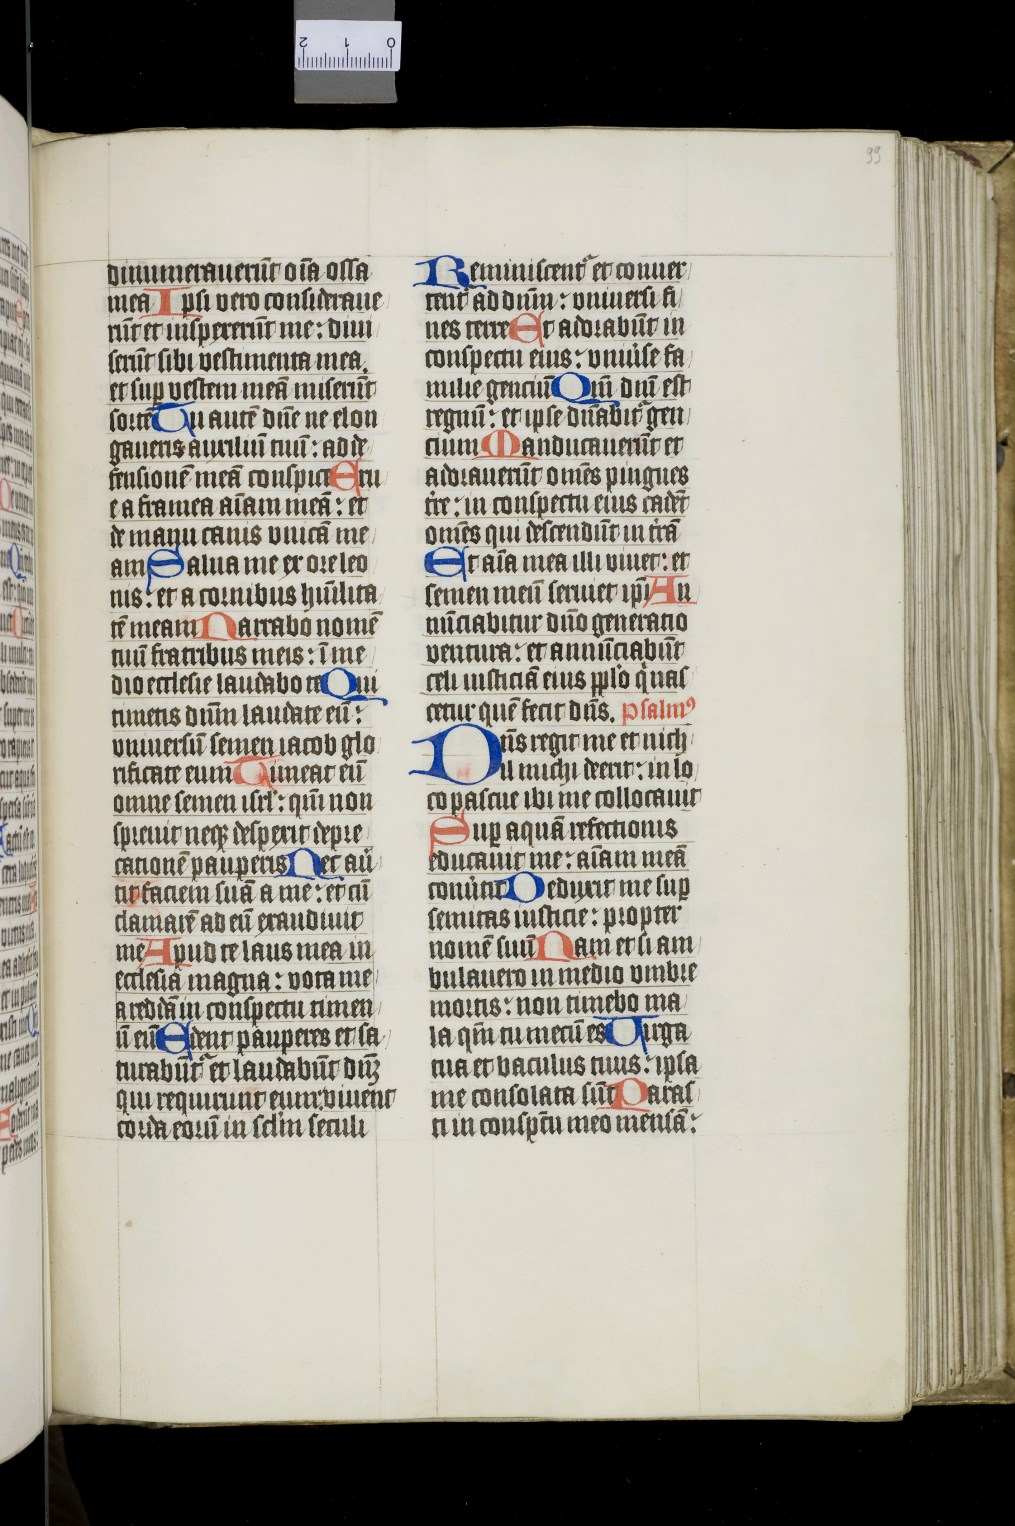 99
dinumerauerūt oīa ossa
mea Ipsi vero consideraue
rūt et inspexerūt me: diui
serūt sibi vestimenta mea.
et sup vestem meā miserūt
sortē Tu autē dn̄e ne elon
gaueris auxiliū tuū: ad de
fensionē meā conspice Eru
e a framea aīam meā: et
de manu canis vnicā me
am Salua me ex ore leo
nis: et a cornibus hūilita
tē meam Narrabo nomē
tuū fratribus meis: ī me
dio ecclesie laudabo te Qui
timetis dn̄m laudate eū:
vniuersū semen iacob glo
rificate eum Timeat eū
omne semen isrl': qm̄ non
spreuit neqꝫ despexit depre
cationē pauperis Nec au
tit faciem suā a me: et cū
clamarē ad eū exaudiuit
me Apud te laus mea in
ecclesia magna: vota me
a reddā in conspectu timen
ū eū Edent pauperes et sa
turabūt᷑ et laudabūt dn̄ꝫ
qui requirunt eum: viuent
corda eorū in sclm̄ seculi
Reminiscent᷑ et conuer
tent᷑ ad dn̄m: vniuersi fi
nes terre Et adorabūt in
conspectu eius: vniu̾se fa
milie genciū Qm̄ dn̄i est
regnū: et ipse dn̄abit᷑ gen
cium Manducauerūt et
adorauerūt omēs pingues
tr̄e: in conspectu eius cadēt
omēs qui descendūt in tr̄ā
Et aīa mea illi viuet: et
semen meū seruiet ip̄i An
nūciabitur dn̄o generatio
ventura: et annūciabūt
celi iusticiā eius pp̄lo q̇ nas
cetur quē fecit dn̄s. psalmꝰ
Dn̄s regit me et nich
il michi deerit: in lo
co pascue ibi me collocauit
Sup aquā refectionis
educauit me: aīam meā
conu̾tit Deduxit me sup
semitas iusticie: propter
nomē suū Nam et si am
bulauero in medio vmbre
mortis: non timebo ma
la qm̄ tu mecū es Uirga
tua et baculus tuus: ipsa
me consolata sūt Paras
ti in consp̄ctu meo mensā: